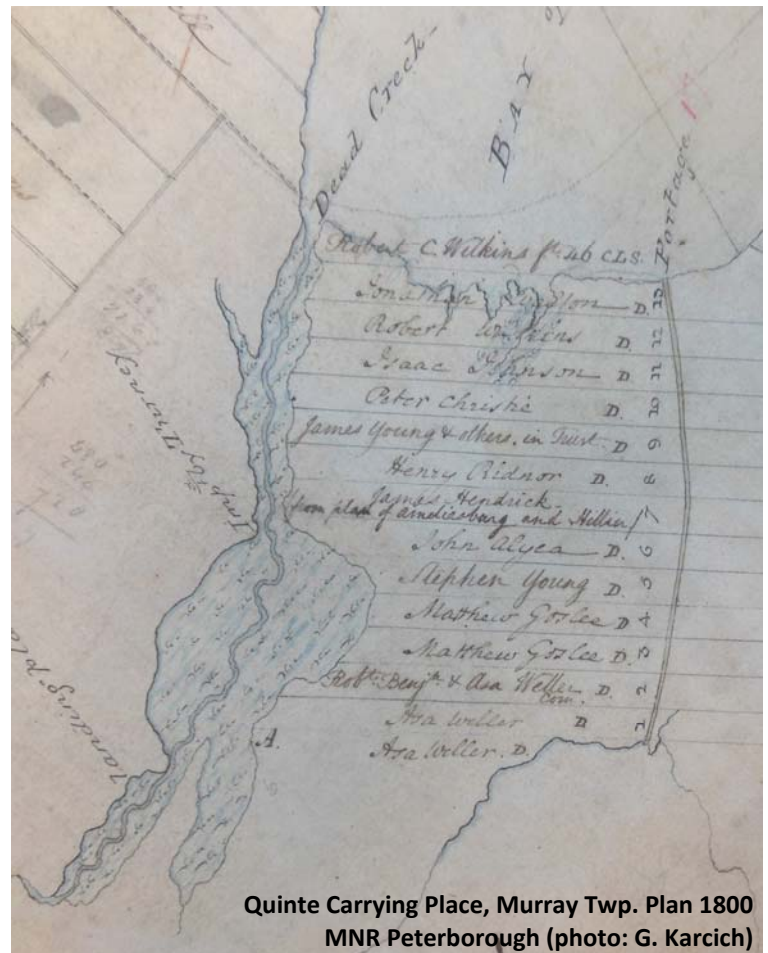 Dead Creek
BAY
Portage
Robert C. Wilkins pt. 46 CLS.
Jonathan D. 13
Robert Wilkins D. 12
Isaac Johnson D. 11
Peter Christie D. 10
James Young & others, in Trust D 9
Henry Ridnor D. 8
James Hendrick 7
from plan of ameliasburg and Hillier
John Alyea D. 6
Stephen Young D. 5
Matthew Goslee D 4
Matthew Goslee D. 3
Robt. Benjn. & Asa Weller D. 2
Com.
Asa Weller D 1
A. Asa Weller. D.
Landing pla
Quinte Carrying Place, Murray Twp. Plan 1800
MNR Peterborough (photo: G. Karcich)